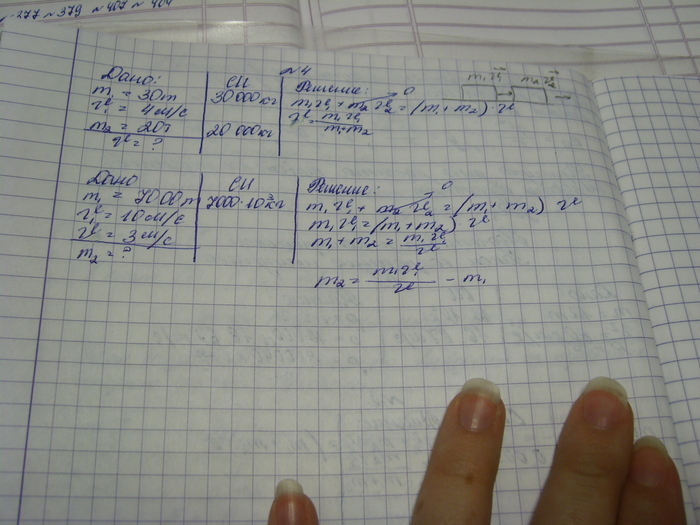 №277 №379 №407 №404
№4
Дано:
m₁ = 30т
υ₁ = 4м/с
m₂ = 20т
υ = ?
СИ
30 000кг
20 000кг
Решение:
m₁υ₁ + m₂υ₂ = (m₁ + m₂)·υ
0
υ = m₁υ₁ / m₁+m₂
m₁υ₁ m₂υ₂
Дано
m₁ = 7000т
υ₁ = 10м/с
υ = 3м/с
m₂ = ?
СИ
7000·10³кг
Решение:
m₁υ₁ + m₂υ₂ = (m₁ + m₂) υ
0
m₁υ₁ = (m₁ + m₂) υ
m₁ + m₂ = m₁υ₁ / υ
m₂ = m₁υ₁ / υ − m₁